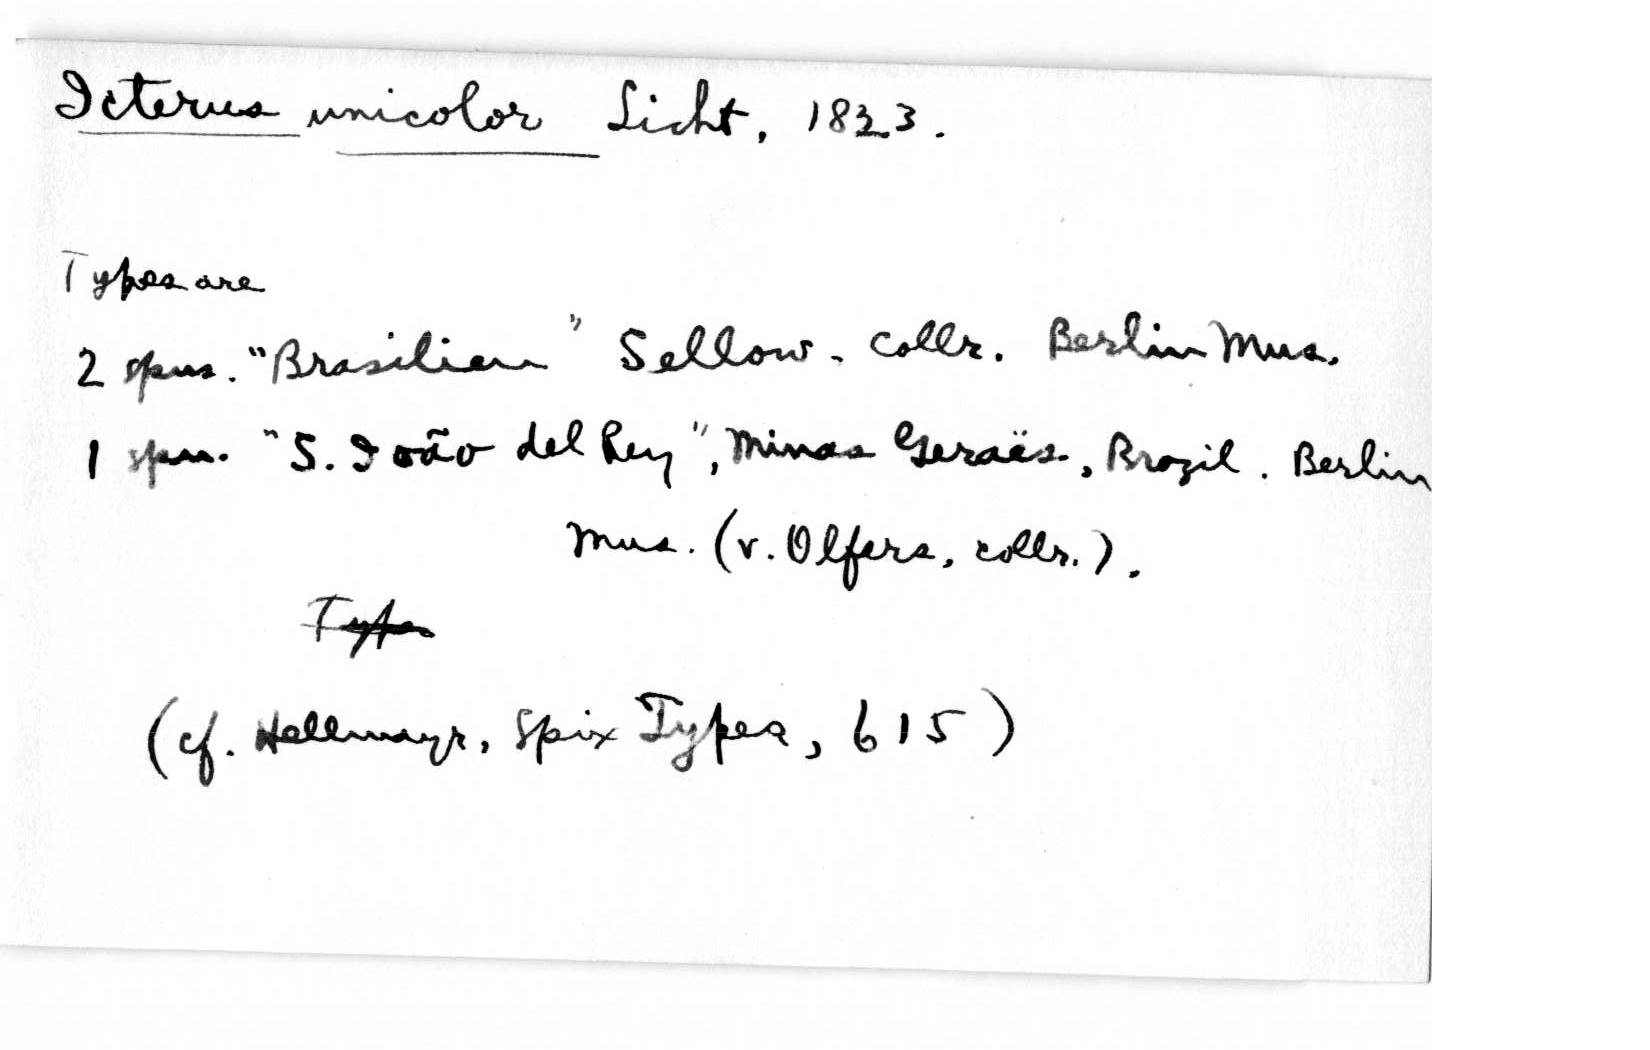 Icterus unicolor Licht, 1823.
Types are
2 spns. "Brasilien" Sellow. collr. Berlin Mus.
1 spn. "S. João del Rey", Minas Geraës, Brazil. Berlin
Mus. (v. Olfers, collr.).
Types
(cf. Hellmayr, Spix Types, 615)